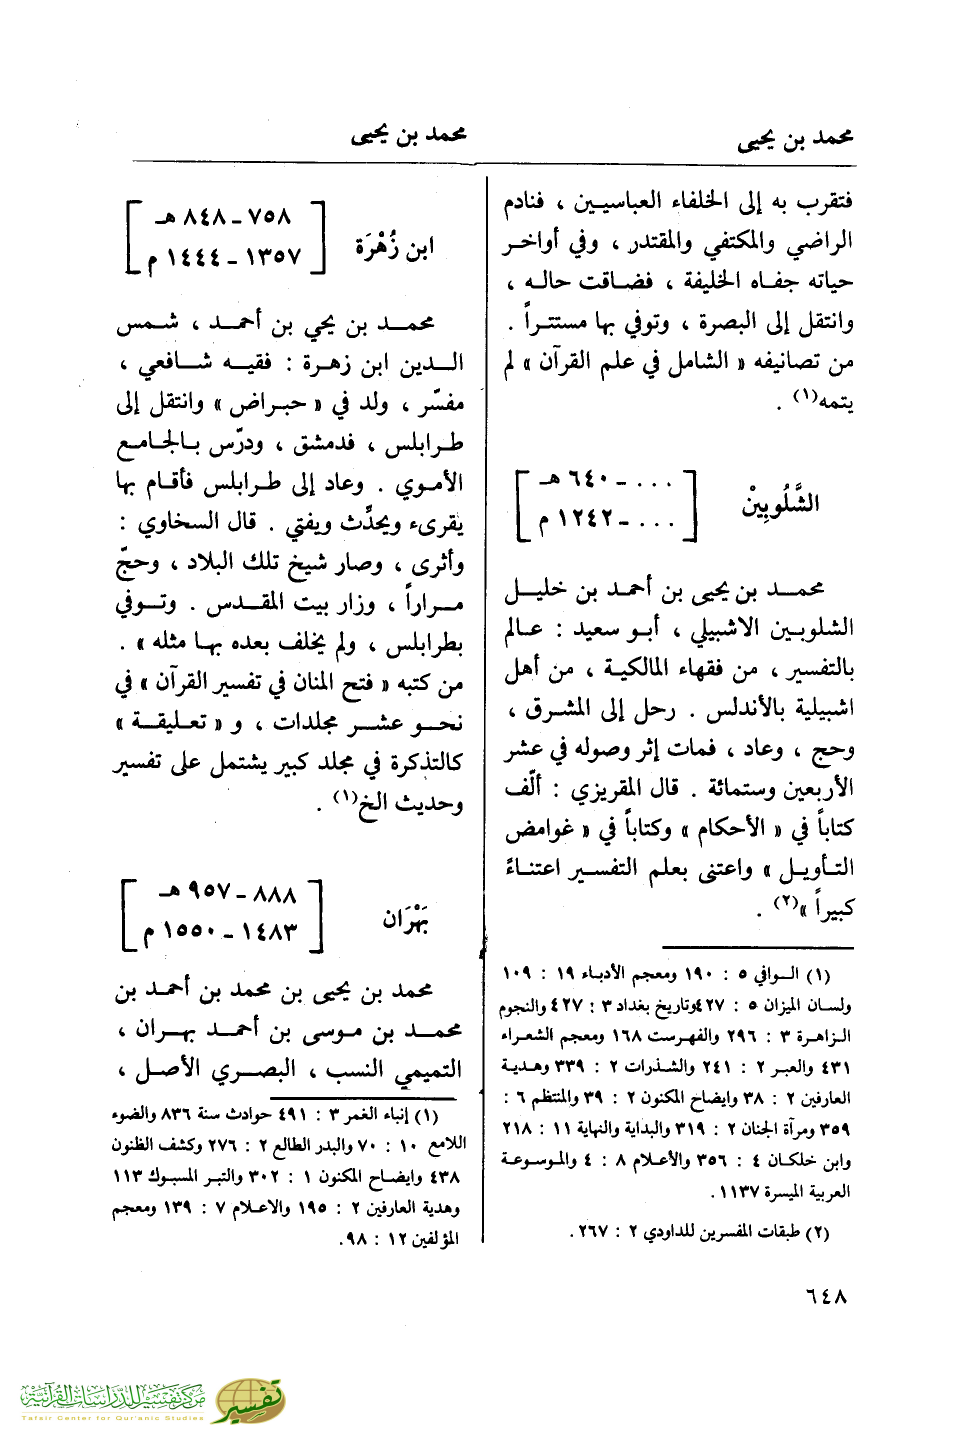 محمد بن يحيى
محمد بن يحيى
فتقرب به إلى الخلفاء العباسيين ، فنادم
الراضي والمكتفي والمقتدر ، وفي أواخر
حياته جفاه الخليفة ، فضاقت حاله ،
وانتقل إلى البصرة ، وتوفي بها مستتراً .
من تصانيفه « الشامل في علم القرآن » لم
يتمه(١) .
الشَّلُوبِينْ
[ . . . - ٦٤٠ هـ
. . . - ١٢٤٢ م ]
محمد بن يحيى بن أحمد بن خليل
الشلوبين الاشبيلي ، أبو سعيد : عالم
بالتفسير ، من فقهاء المالكية ، من أهل
اشبيلية بالأندلس . رحل إلى المشرق ،
وحج ، وعاد ، فمات إثر وصوله في عشر
الأربعين وستمائة . قال المقريزي : ألّف
كتاباً في « الأحكام » وكتاباً في « غوامض
التأويل » واعتنى بعلم التفسير اعتناءً
كبيراً »(٢) .
(١) الوافي ٥ : ١٩٠ ومعجم الأدباء ١٩ : ١٠٩
ولسان الميزان ٥ : ٤٢٧ وتاريخ بغداد ٣ : ٤٢٧ والنجوم
الزاهرة ٣ : ٢٩٦ والفهرست ١٦٨ ومعجم الشعراء
٤٣١ والعبر ٢ : ٢٤١ والشذرات ٢ : ٣٣٩ وهدية
العارفين ٢ : ٣٨ وايضاح المكنون ٢ : ٣٩ والمنتظم ٦ :
٣٥٩ ومرآة الجنان ٢ : ٣١٩ والبداية والنهاية ١١ : ٢١٨
وابن خلكان ٤ : ٣٥٦ والأعلام ٨ : ٤ والموسوعة
العربية الميسرة ١١٣٧ .
(٢) طبقات المفسرين للداودي ٢ : ٢٦٧ .
ابن زُهْرَة
[ ٧٥٨ - ٨٤٨ هـ
١٣٥٧ - ١٤٤٤ م ]
محمد بن يحي بن أحمد ، شمس
الدين ابن زهرة : فقيه شافعي ،
مفسّر ، ولد في « حبراض » وانتقل إلى
طرابلس ، فدمشق ، ودرّس بالجامع
الأموي . وعاد إلى طرابلس فأقام بها
يقرىء ويحدِّث ويفتي . قال السخاوي :
وأثرى ، وصار شيخ تلك البلاد ، وحجّ
مراراً ، وزار بيت المقدس . وتوفي
بطرابلس ، ولم يخلف بعده بها مثله » .
من كتبه « فتح المنان في تفسير القرآن » في
نحو عشر مجلدات ، و « تعليقة »
كالتذكرة في مجلد كبير يشتمل على تفسير
وحديث الخ(١) .
بَهْرَان
[ ٨٨٨ - ٩٥٧ هـ
١٤٨٣ - ١٥٥٠ م ]
محمد بن يحيى بن محمد بن أحمد بن
محمد بن موسى بن أحمد بهران ،
التميمي النسب ، البصري الأصل ،
(١) إنباء الغمر ٣ : ٤٩١ حوادث سنة ٨٣٦ والضوء
اللامع ١٠ : ٧٠ والبدر الطالع ٢ : ٢٧٦ وكشف الظنون
٤٣٨ وايضاح المكنون ١ : ٣٠٢ والتبر المسبوك ١١٣
وهدية العارفين ٢ : ١٩٥ والاعلام ٧ : ١٣٩ ومعجم
المؤلفين ١٢ : ٩٨.
٦٤٨
مركز تفسير للدراسات القرآنية
Tafsir Center for Qur'anic Studies
تفسير